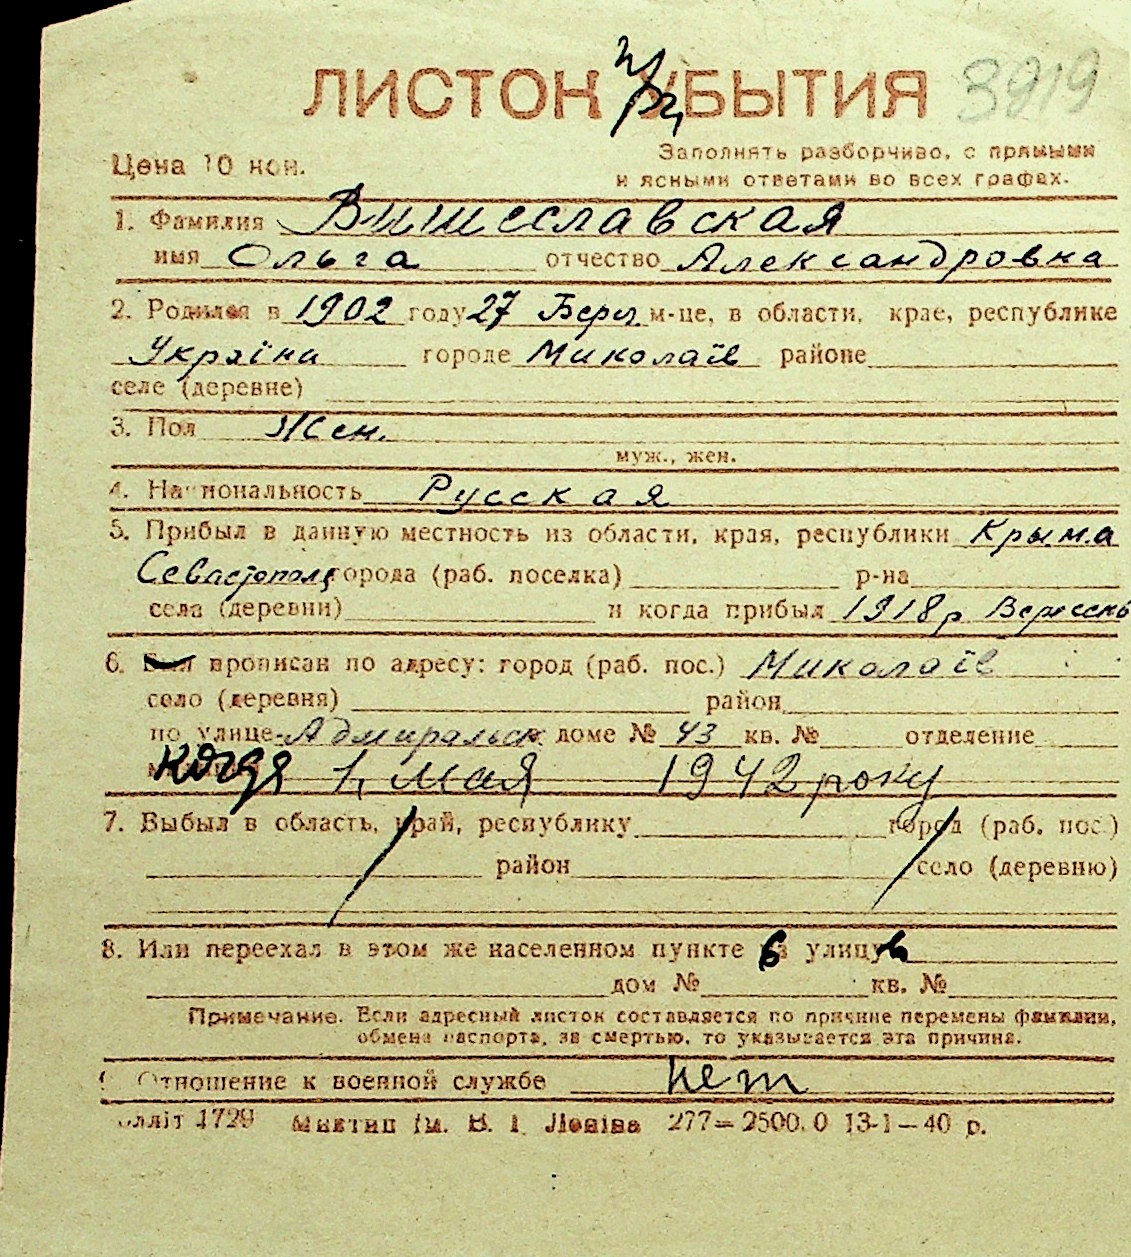 ЛИСТОК УБЫТИЯ 3919
Цена 10 коп. Заполнять разборчиво, с прямыми
и ясными ответами во всех графах.
1. Фамилия Вишеславская
имя Ольга отчество Александровна
2. Родился в 1902 году 27 Берез м-це, в области, крае, республике
Україна городе Миколаїв районе
селе (деревне)
3. Пол Жен.
муж., жен.
4. Национальность Русская
5. Прибыл в данную местность из области, края, республики Крыма
Севастополь города (раб. поселка) р-на
села (деревни) и когда прибыл 1918 р Вересень
6. Был прописан по адресу: город (раб. пос.) Миколаїв
село (деревня) район
по улице Адмиральск доме № 43 кв. № отделение
когда 1, мая 1942 року
7. Выбыл в область, край, республику город (раб. пос.)
район село (деревню)
8. Или переехал в этом же населенном пункте в улицу
дом № кв. №
Примечание. Если адресный листок составляется по причине перемены фамилии,
обмена паспорта, за смертью, то указывается эта причина.
Отношение к военной службе нет
лліт 1729 Миктип ім. В. І. Леніна 277—2500.0 13-1—40 р.